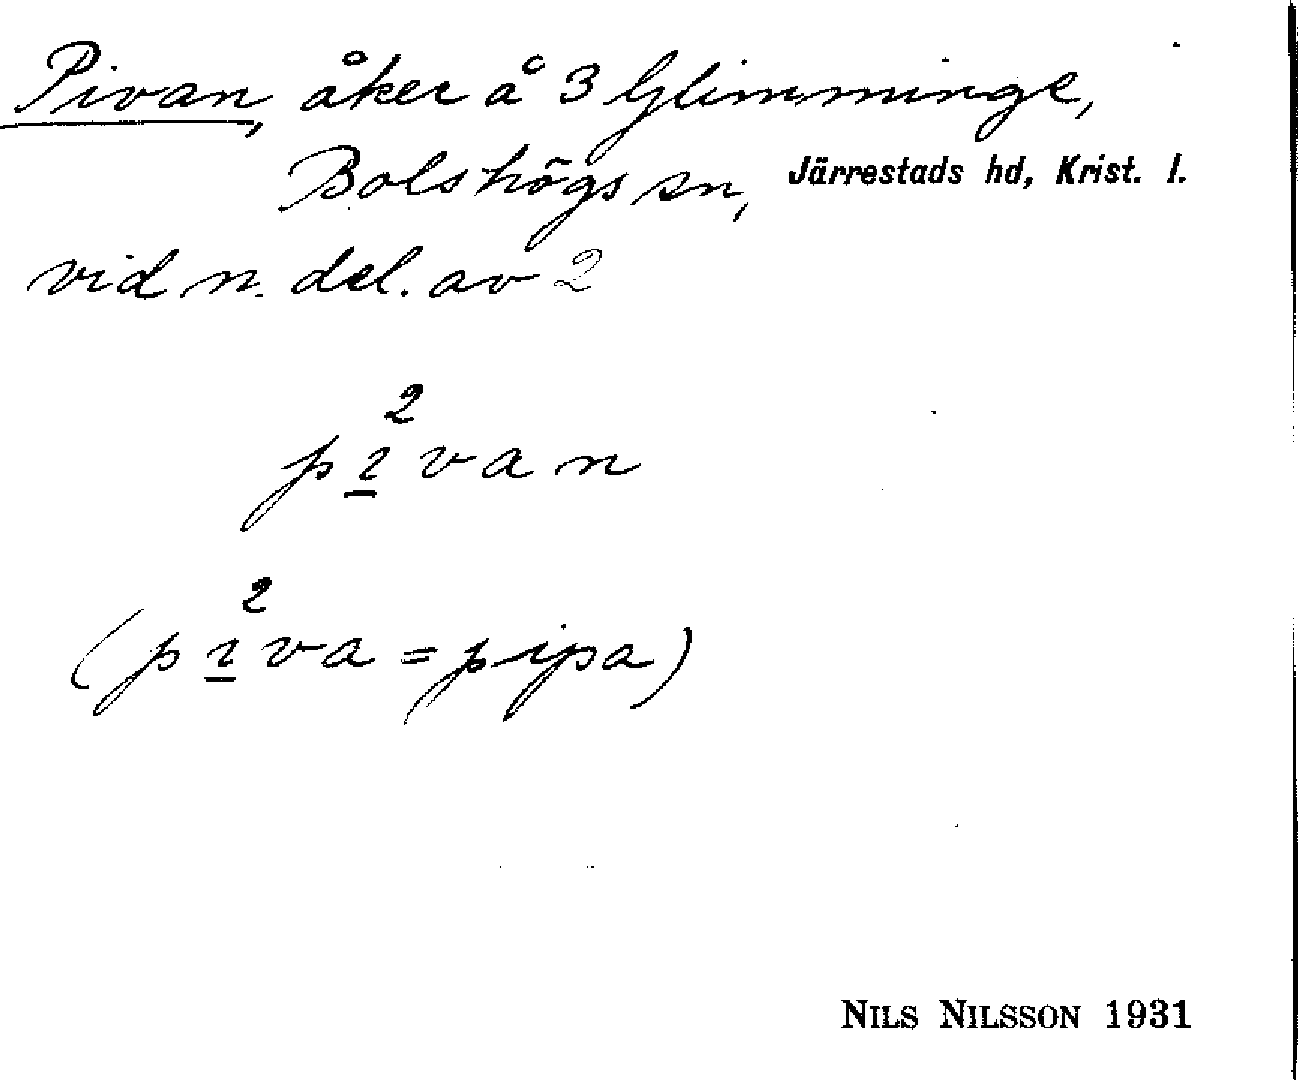 Pivan, åker å 3 Glimminge,
Bolshögs sn, Järrestads hd, Krist. l.
vid n. del. av 2
pɪ̱²van
(pɪ̱²va = pipa)
NILS NILSSON 1931